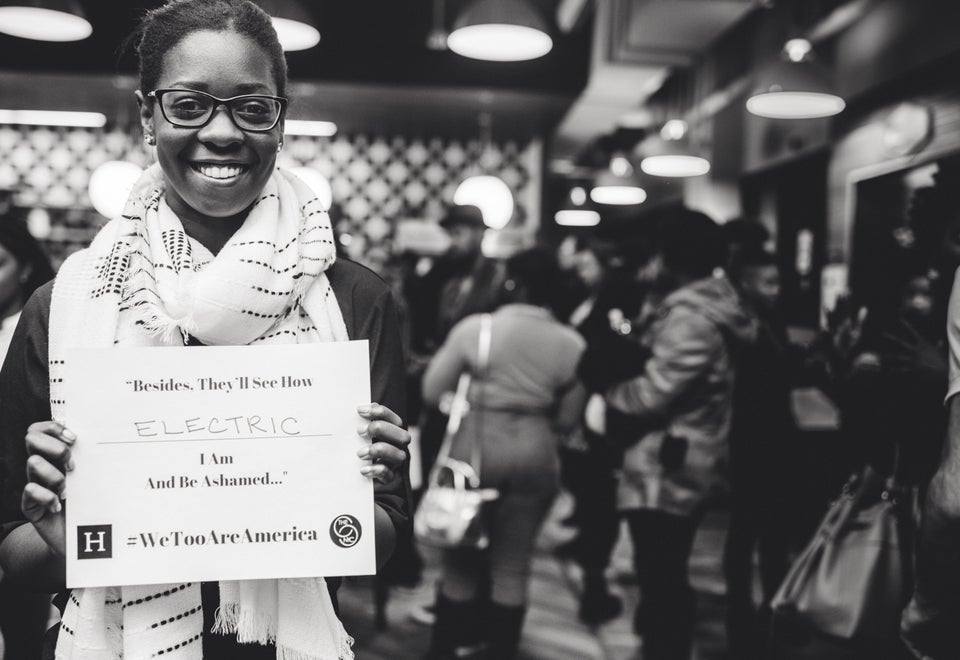 "Besides, They'll See How
ELECTRIC
I Am
And Be Ashamed..."
H
#WeTooAreAmerica